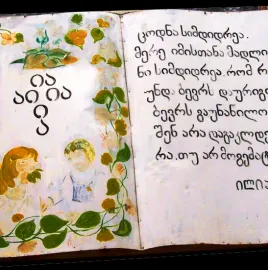 ია
აი ია
ი
ა
ცოდნა სიმდიდრეა.
მერე იმისთანა მადლი
ნი სიმდიდრეა. რომ რ
უნდა ბევრს დაურიგო
ბევრს გაუნაწილო
შენ არა დაგაკლდებ
რა. თუ არ მოგემატ
ილია